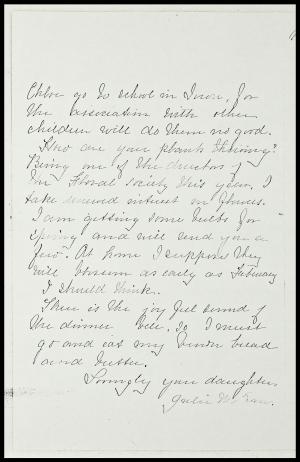 Chloe go to school in town, for
the association with other
children will do them no good.
How are your plants thriving?
Being one of the directors of
our Floral society this year, I
take renewed interest in flowers.
I am getting some bulbs for
spring and will send you a
few. At home I suppose they
will blossom as early as February
I should think.
There is the joyful sound of
the dinner bell. So I must
go and eat my brown bread
and butter.
Lovingly your daughter
Julia